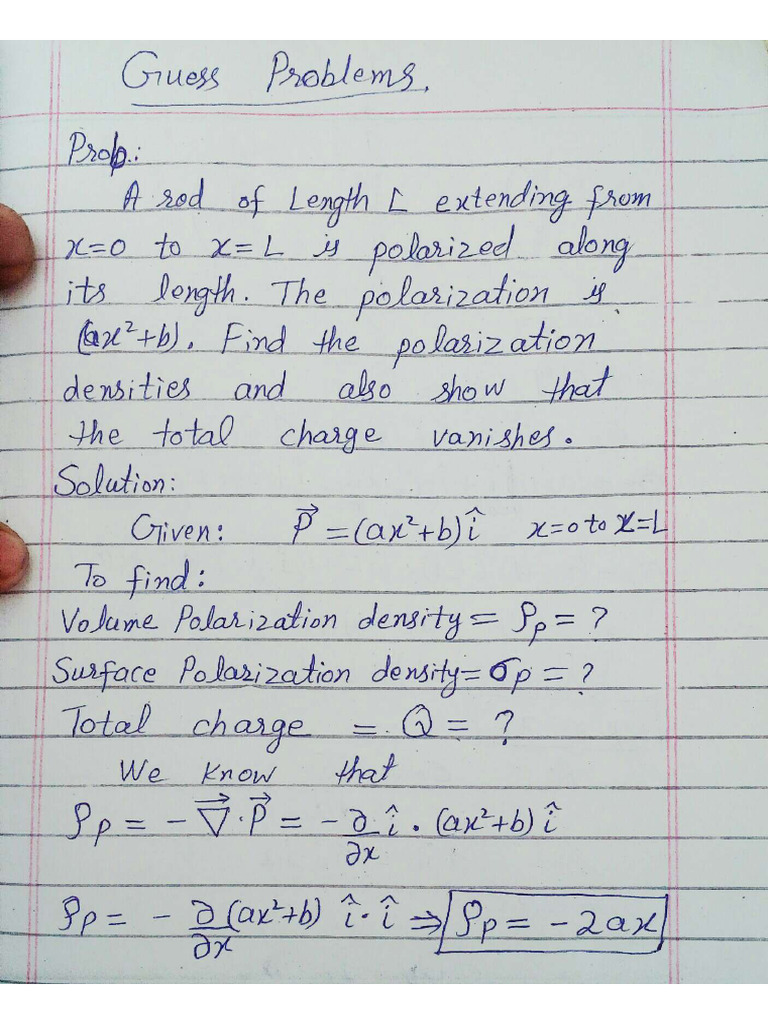 Guess Problems.
Prob.:
A rod of Length L extending from
x=0 to x=L is polarized along
its length. The polarization is
(ax²+b). Find the polarization
densities and also show that
the total charge vanishes.
Solution:
Given: P⃗ = (ax²+b) î x=0 to x=L
To find:
Volume Polarization density = ρₚ = ?
Surface Polarization density = σₚ = ?
Total charge = Q = ?
We know that
ρₚ = - ∇⃗ · P⃗ = - ∂/∂x î . (ax²+b) î
ρₚ = - ∂/∂x (ax²+b) î · î ⇒ ρₚ = - 2ax